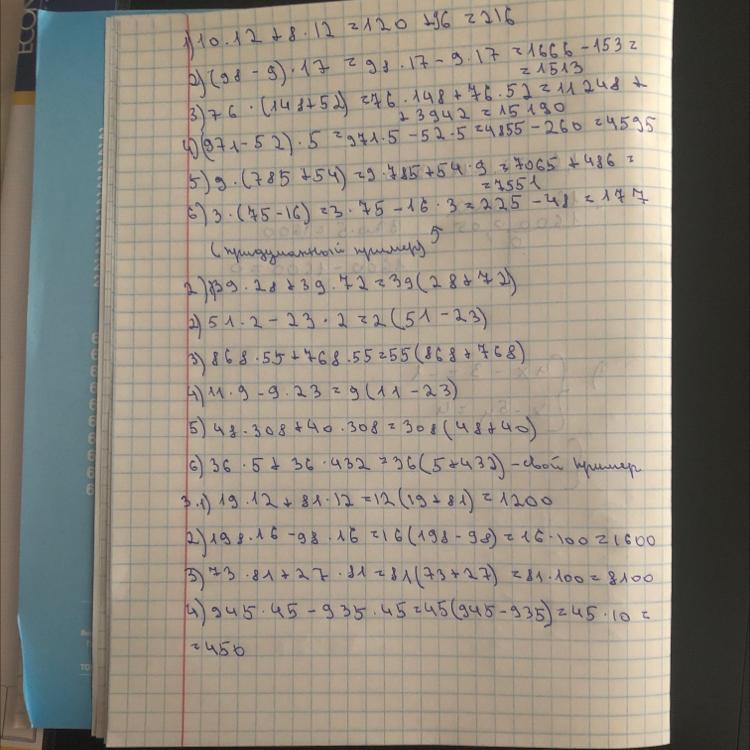 1) 10 · 12 + 8 · 12 = 120 + 96 = 216
2) (98 - 9) · 17 = 98 · 17 - 9 · 17 = 1666 - 153 =
= 1513
3) 76 · (148 + 52) = 76 · 148 + 76 · 52 = 11 248 +
+ 3942 = 15190
4) (971 - 52) · 5 = 971 · 5 - 52 · 5 = 4855 - 260 = 4595
5) 9 · (785 + 54) = 9 · 785 + 54 · 9 = 7065 + 486 =
= 7551
6) 3 · (75 - 16) = 3 · 75 - 16 · 3 = 225 - 48 = 177
(придуманный пример)
2) 39 · 28 + 39 · 72 = 39(28 + 72)
2) 51 · 2 - 23 · 2 = 2(51 - 23)
3) 868 · 55 + 768 · 55 = 55(868 + 768)
4) 11 · 9 - 9 · 23 = 9(11 - 23)
5) 48 · 308 + 40 · 308 = 308(48 + 40)
6) 36 · 5 + 36 · 432 = 36(5 + 432) - свой пример
3.1) 19 · 12 + 81 · 12 = 12(19 + 81) = 1200
2) 198 · 16 - 98 · 16 = 16(198 - 98) = 16 · 100 = 1600
3) 73 · 81 + 27 · 81 = 81(73 + 27) = 81 · 100 = 8100
4) 945 · 45 - 935 · 45 = 45(945 - 935) = 45 · 10 =
= 450